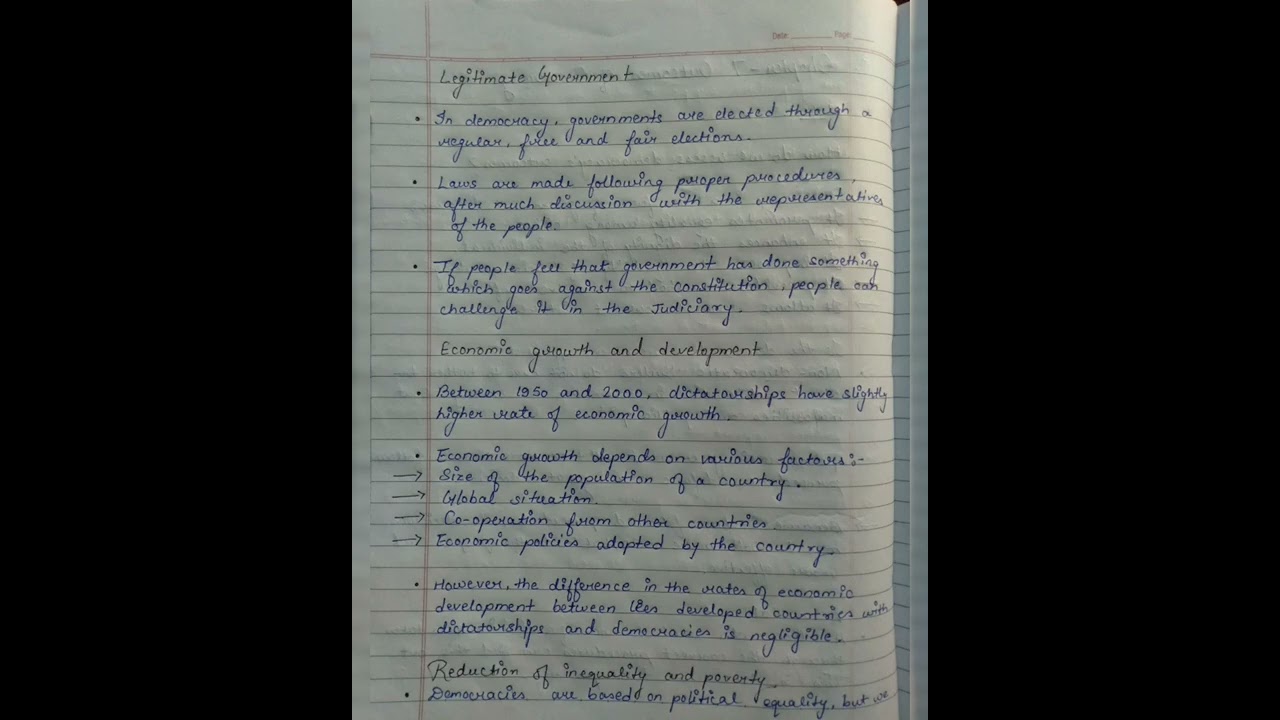 Date Page
Legitimate Government
• In democracy, governments are elected through a
regular, free and fair elections.
• Laws are made following proper procedures,
after much discussion with the representatives
of the people.
• If people feel that government has done something
which goes against the constitution, people can
challenge it in the Judiciary.
Economic growth and development
• Between 1950 and 2000, dictatorships have slightly
higher rate of economic growth.
• Economic growth depends on various factors:-
→ Size of the population of a country.
→ Global situation.
→ Co-operation from other countries
→ Economic policies adopted by the country.
• However, the difference in the rates of economic
development between less developed countries with
dictatorships and democracies is negligible.
Reduction of inequality and poverty
• Democracies are based on political equality, but we